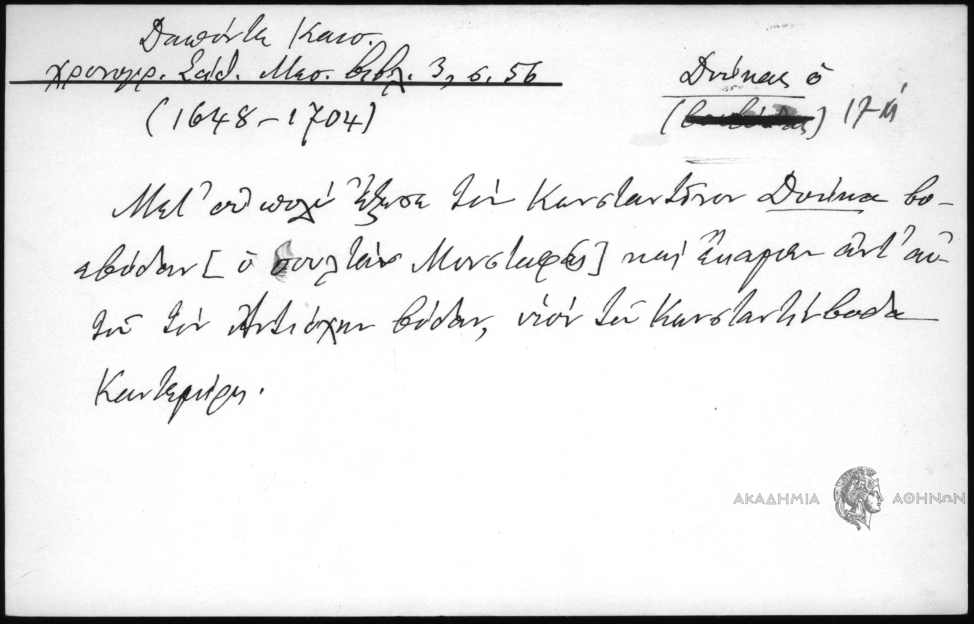 Δαπόντε Κωσ.
χρονογρ. Σάθ. Μεσ. βιβλ. 3, σ. 56
(1648-1704)
Δούκας ὁ
17-
Μετ' οὐ πολὺ ἔξωσε τὸν Κωνσταντῖνον Δούκα βο-
εβόδαν [ὁ σουλτὰν Μουσταφᾶς] καὶ ἔκαμαν ἀντ' αὐ-
τοῦ τὸν Ἀντιόχον βόδαν, υἱὸν τοῦ Κωνσταντίνβοδα
Καντεμίρη.
ΑΚΑΔΗΜΙΑ ΑΘΗΝΩΝ